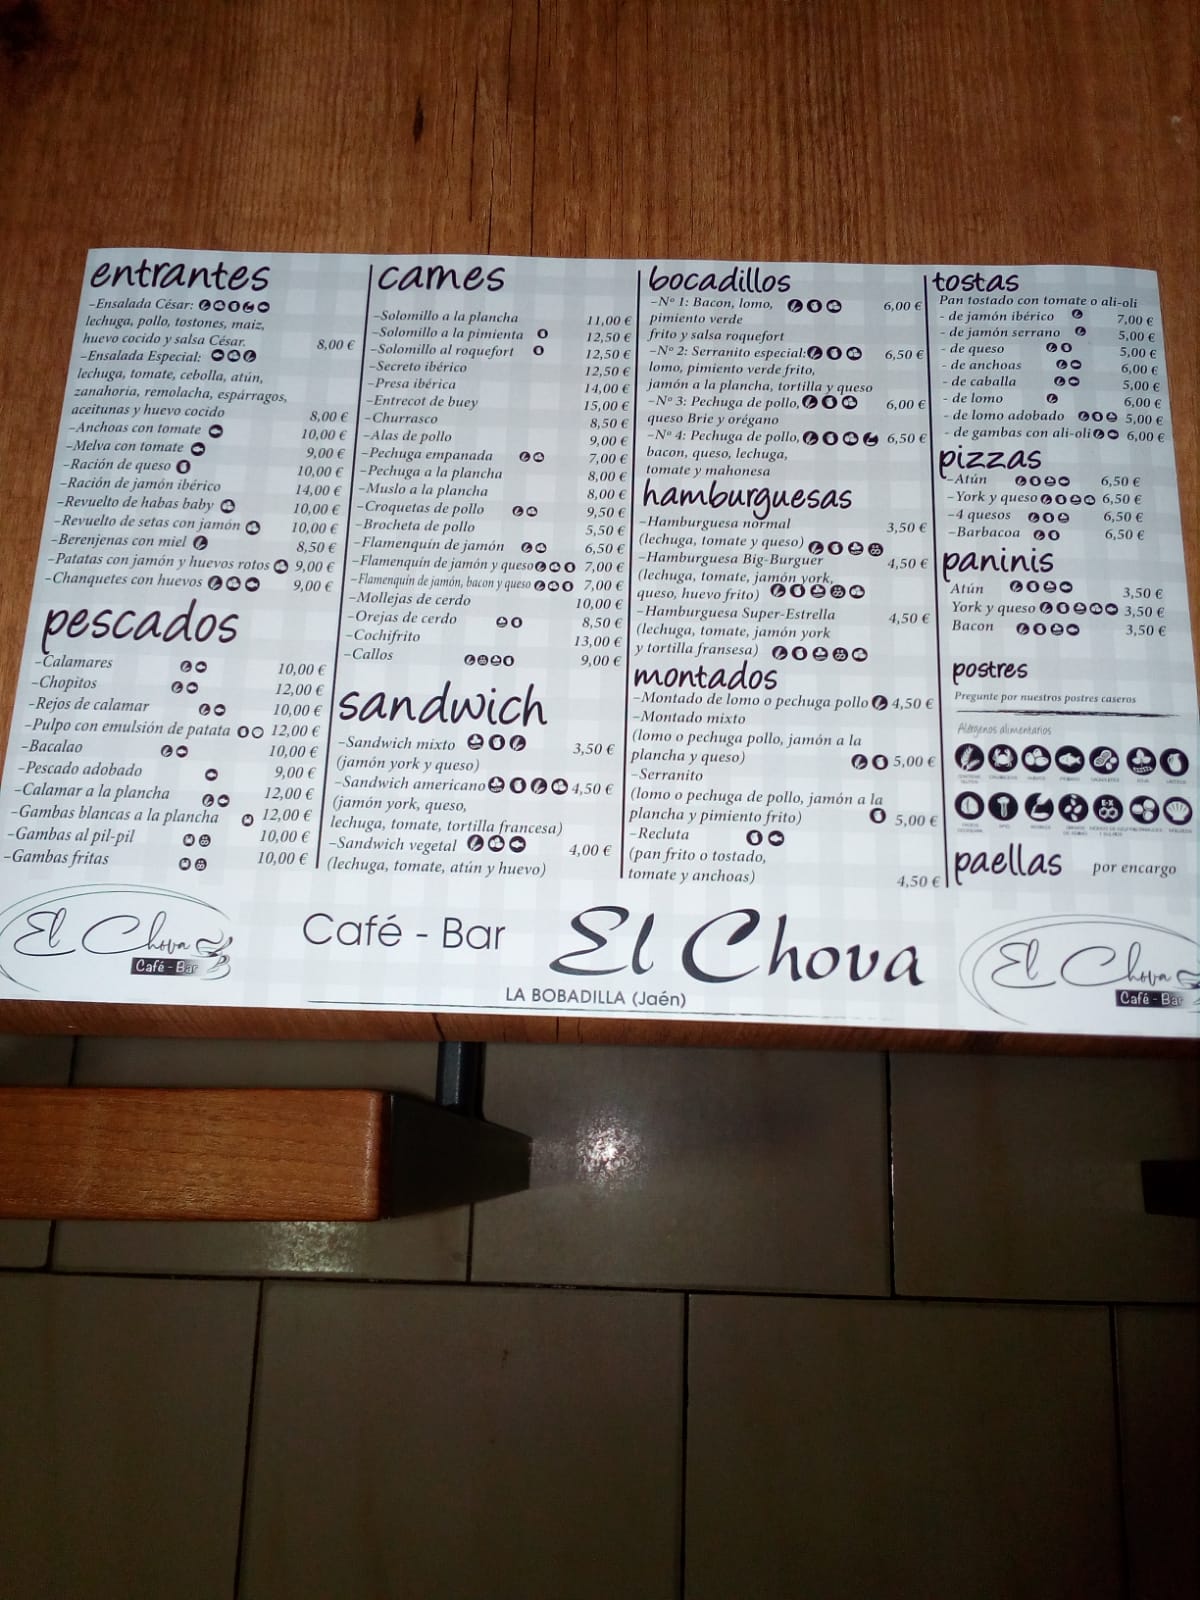 entrantes
-Ensalada César:
lechuga, pollo, tostones, maiz,
huevo cocido y salsa César. 8,00 €
-Ensalada Especial:
lechuga, tomate, cebolla, atún,
zanahoria, remolacha, espárragos,
aceitunas y huevo cocido 8,00 €
-Anchoas con tomate 10,00 €
-Melva con tomate 9,00 €
-Ración de queso 10,00 €
-Ración de jamón ibérico 14,00 €
-Revuelto de habas baby 10,00 €
-Revuelto de setas con jamón 10,00 €
-Berenjenas con miel 8,50 €
-Patatas con jamón y huevos rotos 9,00 €
-Chanquetes con huevos 9,00 €
pescados
-Calamares 10,00 €
-Chopitos 12,00 €
-Rejos de calamar 10,00 €
-Pulpo con emulsión de patata 12,00 €
-Bacalao 10,00 €
-Pescado adobado 9,00 €
-Calamar a la plancha 12,00 €
-Gambas blancas a la plancha 12,00 €
-Gambas al pil-pil 10,00 €
-Gambas fritas 10,00 €
carnes
-Solomillo a la plancha 11,00 €
-Solomillo a la pimienta 12,50 €
-Solomillo al roquefort 12,50 €
-Secreto ibérico 12,50 €
-Presa ibérica 14,00 €
-Entrecot de buey 15,00 €
-Churrasco 8,50 €
-Alas de pollo 9,00 €
-Pechuga empanada 7,00 €
-Pechuga a la plancha 8,00 €
-Muslo a la plancha 8,00 €
-Croquetas de pollo 9,50 €
-Brocheta de pollo 5,50 €
-Flamenquín de jamón 6,50 €
-Flamenquín de jamón y queso 7,00 €
-Flamenquín de jamón, bacon y queso 7,00 €
-Mollejas de cerdo 10,00 €
-Orejas de cerdo 8,50 €
-Cochifrito 13,00 €
-Callos 9,00 €
sandwich
-Sandwich mixto 3,50 €
(jamón york y queso)
-Sandwich americano 4,50 €
(jamón york, queso,
lechuga, tomate, tortilla francesa)
-Sandwich vegetal 4,00 €
(lechuga, tomate, atún y huevo)
bocadillos
-Nº 1: Bacon, lomo, 6,00 €
pimiento verde
frito y salsa roquefort
-Nº 2: Serranito especial: 6,50 €
lomo, pimiento verde frito,
jamón a la plancha, tortilla y queso
-Nº 3: Pechuga de pollo, 6,00 €
queso Brie y orégano
-Nº 4: Pechuga de pollo, 6,50 €
bacon, queso, lechuga,
tomate y mahonesa
hamburguesas
-Hamburguesa normal 3,50 €
(lechuga, tomate y queso)
-Hamburguesa Big-Burguer 4,50 €
(lechuga, tomate, jamón york,
queso, huevo frito)
-Hamburguesa Super-Estrella 4,50 €
(lechuga, tomate, jamón york
y tortilla fransesa)
montados
-Montado de lomo o pechuga pollo 4,50 €
-Montado mixto
(lomo o pechuga pollo, jamón a la
plancha y queso) 5,00 €
-Serranito
(lomo o pechuga de pollo, jamón a la
plancha y pimiento frito) 5,00 €
-Recluta
(pan frito o tostado,
tomate y anchoas) 4,50 €
tostas
Pan tostado con tomate o ali-oli
- de jamón ibérico 7,00 €
- de jamón serrano 5,00 €
- de queso 5,00 €
- de anchoas 6,00 €
- de caballa 5,00 €
- de lomo 6,00 €
- de lomo adobado 5,00 €
- de gambas con ali-oli 6,00 €
pizzas
-Atún 6,50 €
-York y queso 6,50 €
-4 quesos 6,50 €
-Barbacoa 6,50 €
paninis
Atún 3,50 €
York y queso 3,50 €
Bacon 3,50 €
postres
Pregunte por nuestros postres caseros
Alérgenos alimentarios
paellas por encargo
El Chova
Café - Bar
Café - Bar El Chova
LA BOBADILLA (Jaén)
El Chova
Café - Bar